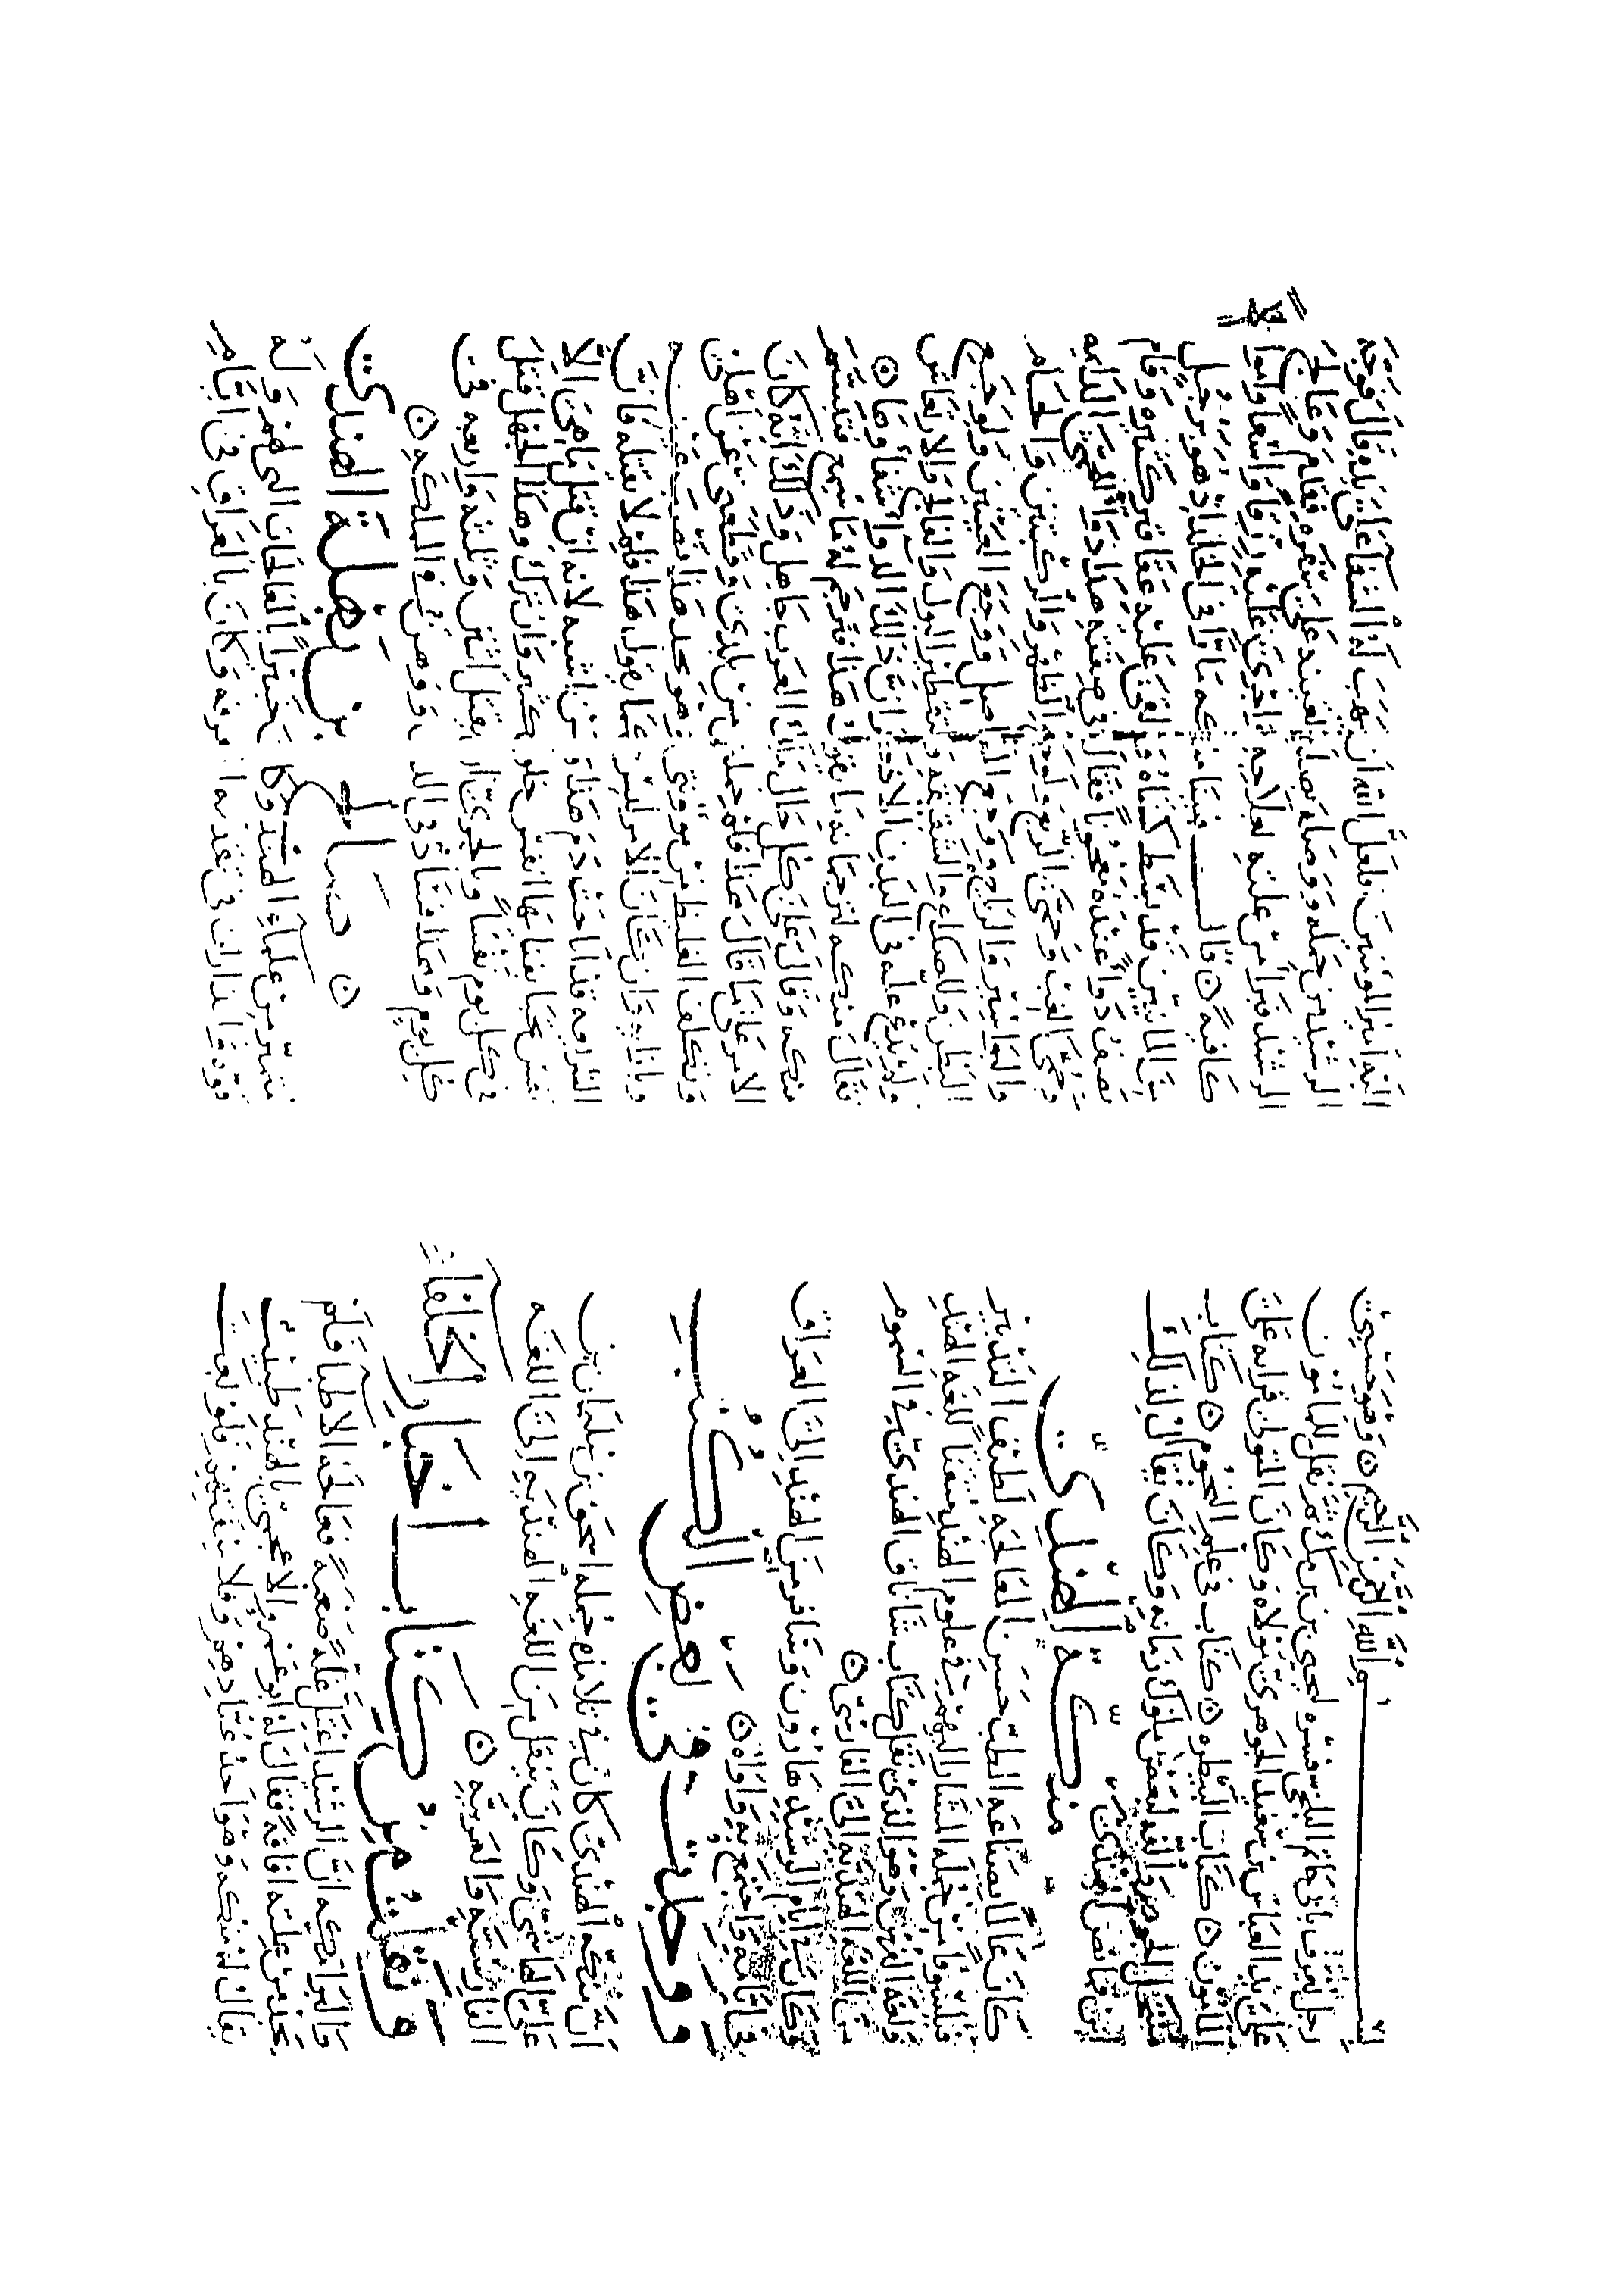 بسم الله الرحمن الرحيم ٥ وهو حسبي
رجل يعرف بابي حاتم البلخي فسره ليحيى بن خالد ثم نقل للمامون
على يد العباس بن سعيد الجوهري مولاه وكان المتولي قراته على
المامون ٥ كتاب البيطره ٥ كتاب في علم النجوم ٥ كتاب
منتحل الجوهر والفه لبعض ملوك زمانه وكان يقال لذلك الملك
ابن قمانص الهندي
منكه الهندي
كان عالما بصناعه الطب حسن المعالجه لطيف التدبير
فيلسوفا من جمله المشار اليهم في علوم الهند متقنا للغه الهند
ولغه الفرس وهو الذي نقل كتاب شاناق الهندي في السموم
من اللغه الهنديه الى الفارسي ٥
وكان في ايام الرشيد هارون وسافر من الهند الى العراق
في ايامه واجتمع به وداواه ٥
ووجدت في بعض الكتب
ان منكه الهندي كان في جمله اسحق بن سليمان بن
علي الهاشمي وكان ينقل من اللغه الهنديه الى اللغه
الفارسيه والعربيه ٥
ونقلت من كتاب اخبار الخلفاء
والبرامكه ان الرشيد اعتل عله صعبه فعالجه الاطبا فلم
يجد من علته افاقه فقال له ابو عمر الاعجمي بالهند طبيب
يقال له منكه وهو احد عبادهم وفلاسفتهم فلو بعث
اليه امير المومنين فلعل الله ان يهب له الشفا على يده قال فوجه
الرشيد من حمله ووصله بصله تعينه على سفره فقدم وعالج
الرشيد فبرا من علته بعلاجه فاجرى عليه رزقا واسعا واموالا
كافيه ٥ قال فبينا منكه مارا في الخلد اذ هو برجل
من المانيين قد بسط كساه والقى عليه عقاقير كثيره وقام
يصف دوا عنده معجونا فقال في صفته هذا دوا للحمى الدايمه
وحمى الغب وحمى الربع ولوجع الظهر والركبتين والخام
والبواسير والرياح ووجع المفاصل ووجع العينين ولوجع
البطن والصداع والشقيقه ولتقطير البول والفالج والارتعاش
ولم يدع عله في البدن الا ذكر ان ذلك الدوا شفاوها ٥
فقال منكه لترجمانه ما يقول هذا فترجم له ما سمع فتبسم
منكه وقال على كل حال ملك العرب جاهل وذلك انه ان كان
الامر على ما قال هذا فلم حملني من بلدي وقطعني عن اهلي
وتكلف الغليظ من موونتي وهو يجد هذا نصب عينه
وبازايه وان كان الامر ليس كما يقول هذا فلم لا يقتله فان
الشريعه قد اباحت دم هذا ومن اشبهه لانه ان قتل ما هي الا
نفس يحيا بفنايها انفس خلق كثير وان ترك وهذا الجهل قتل
في كل يوم نفسا وبالحري ان يقتل اثنين وثلثه واربعه في
كل يوم وهذا فساد في الدين ووهن في المملكه ٥
صالح بن بهله الهندي ٥
متميز من علماء الهند وكان خبيرا بالمعالجات التي لهم وله
قوه وانذارات في تقدمه المعرفه وكان بالعراق في ايام